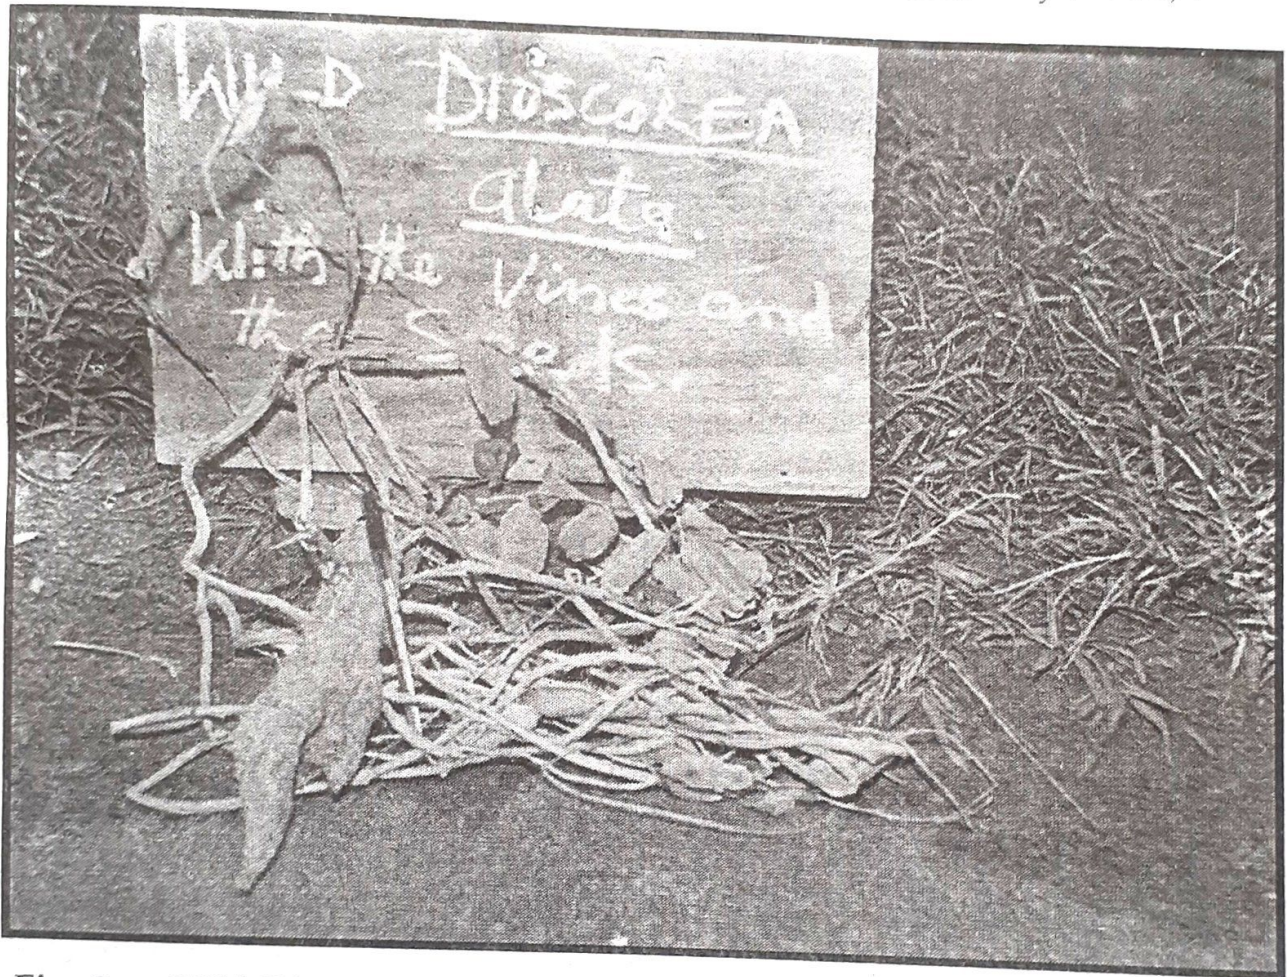 WILD DIOSCOREA
alata.
With the Vines and
the Seeds.